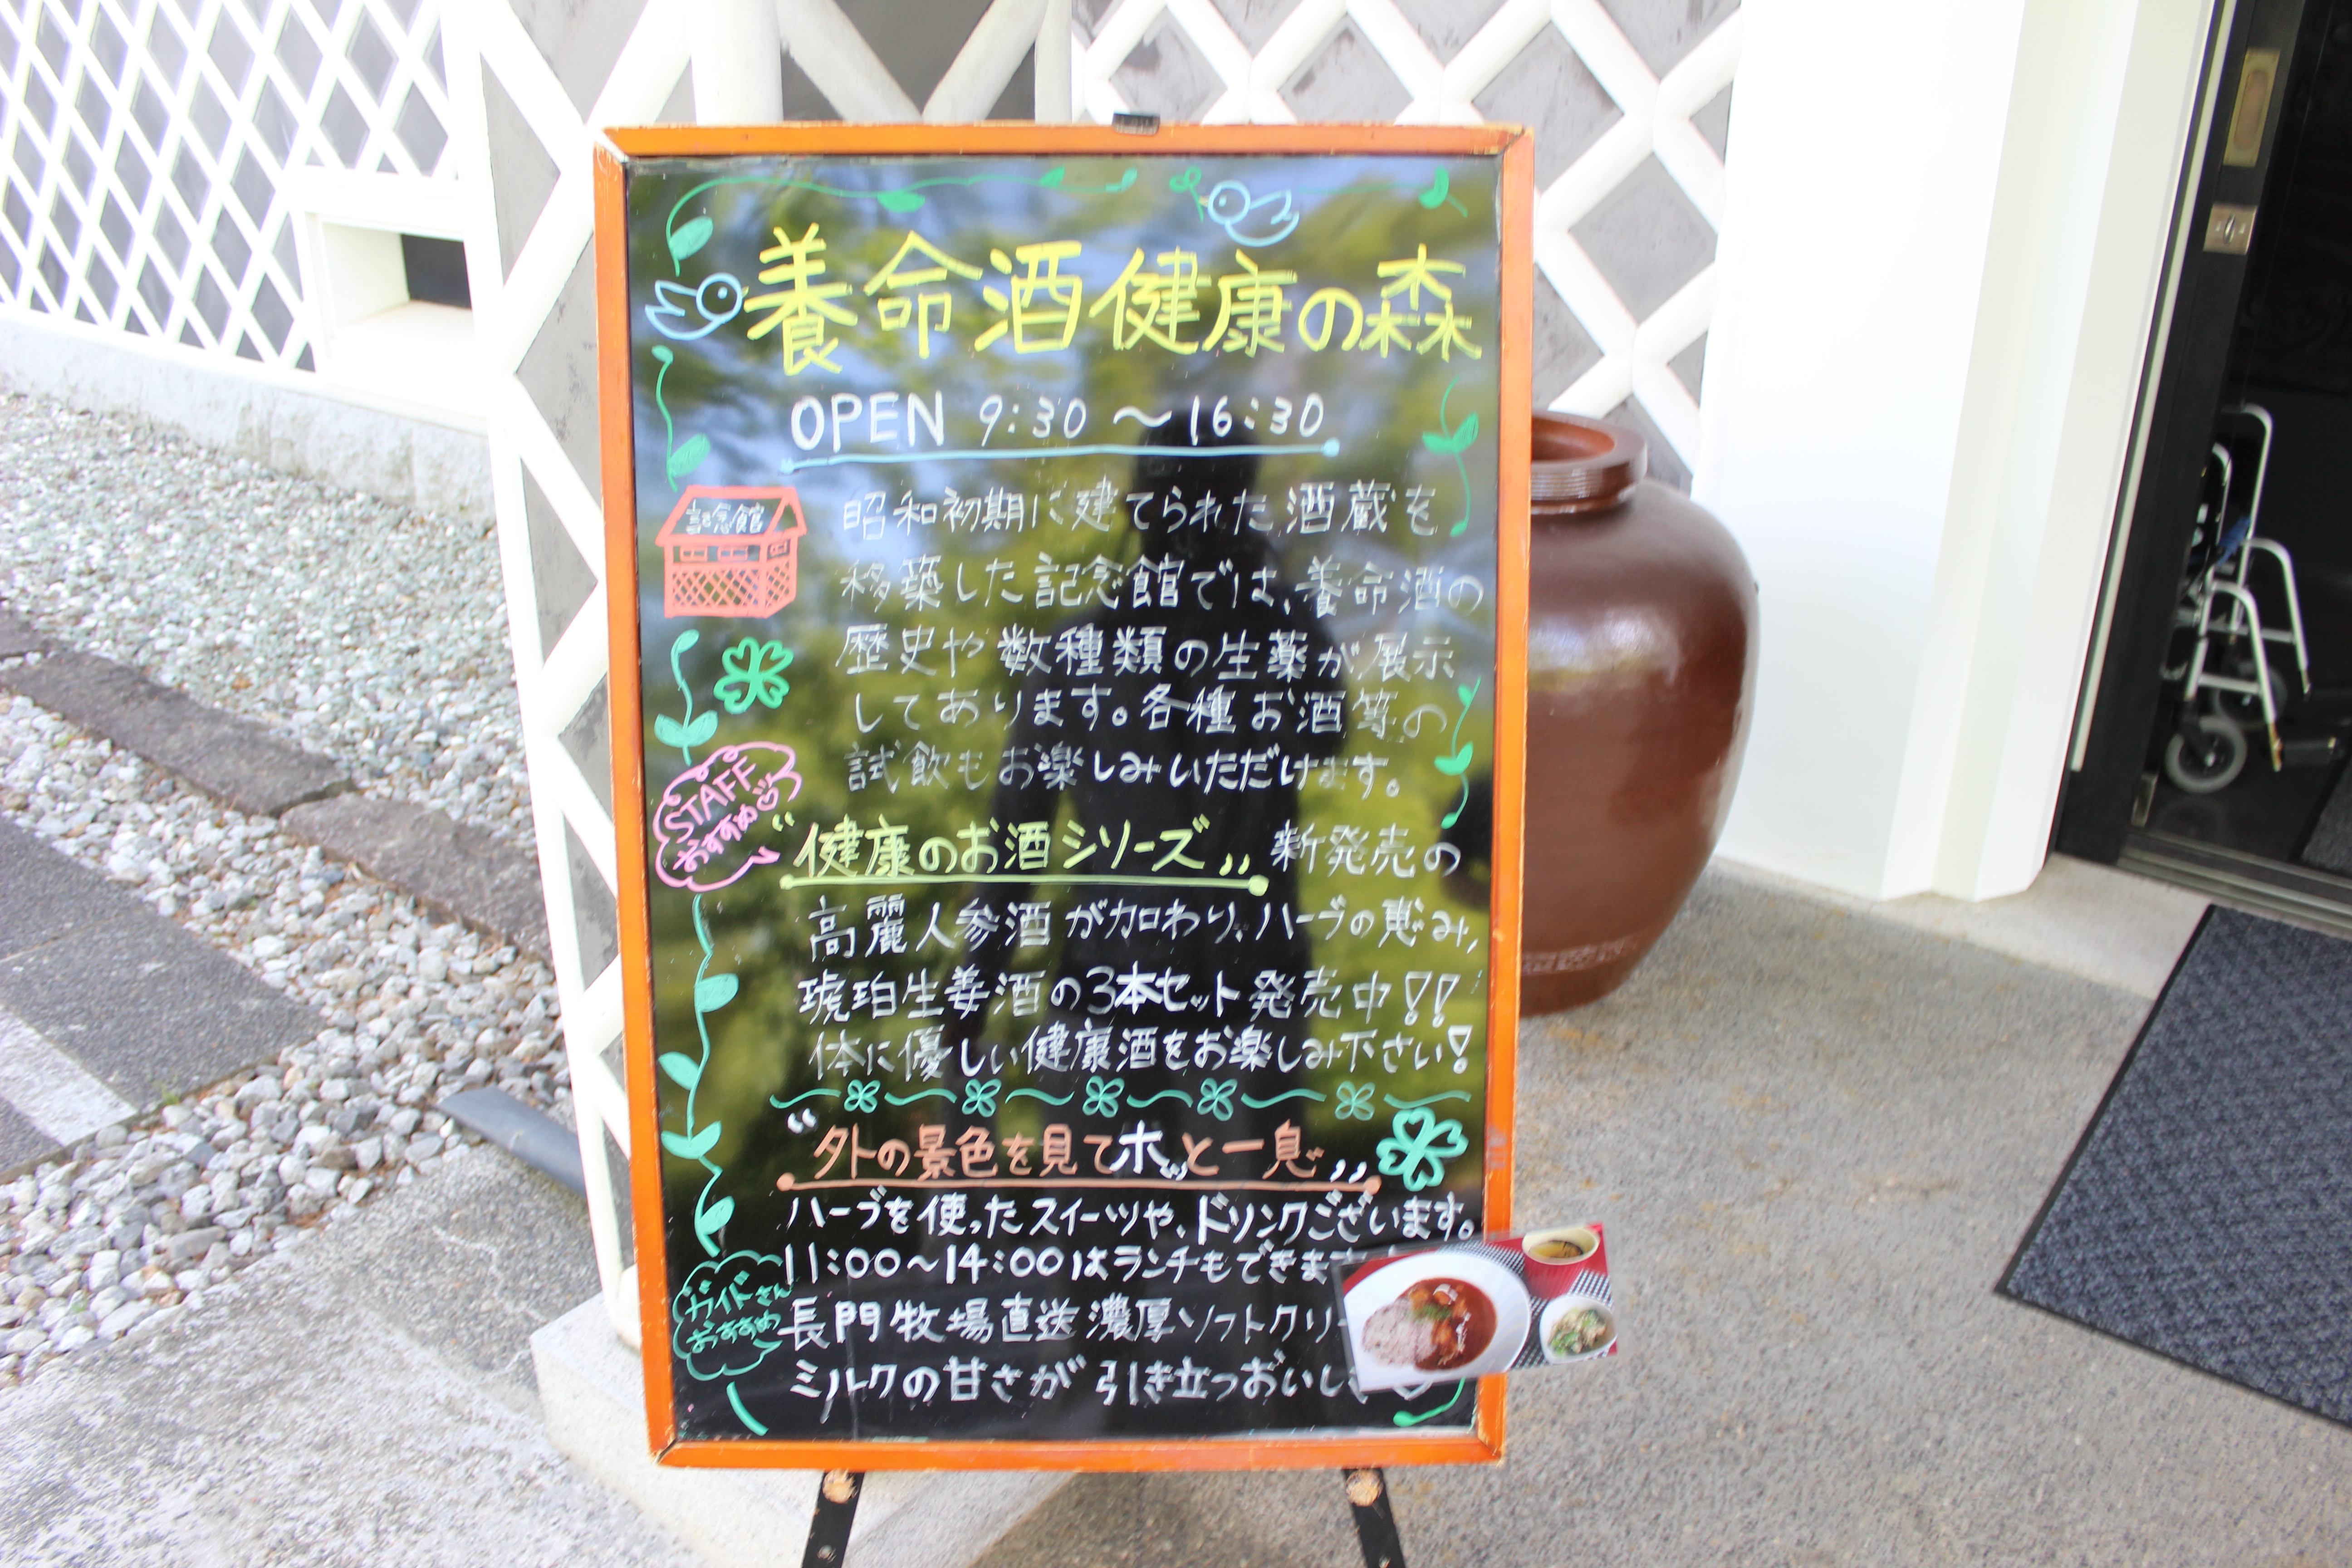 養命酒健康の森
OPEN 9:30 〜 16:30
記念館
昭和初期に建てられた酒蔵を
移築した記念館では、養命酒の
歴史や数種類の生薬が展示
してあります。各種お酒等の
試飲もお楽しみいただけます。
STAFF
おすすめ
"健康のお酒シリーズ" 新発売の
高麗人参酒が加わり、ハーブの恵み、
琥珀生姜酒の3本セット発売中!!
体に優しい健康酒をお楽しみ下さい!
"外の景色を見てホッと一息"
ハーブを使ったスイーツや、ドリンクございます。
11:00〜14:00はランチもできま
ガイドさん
おすすめ
長門牧場直送濃厚ソフトクリー
ミルクの甘さが引き立つおいし